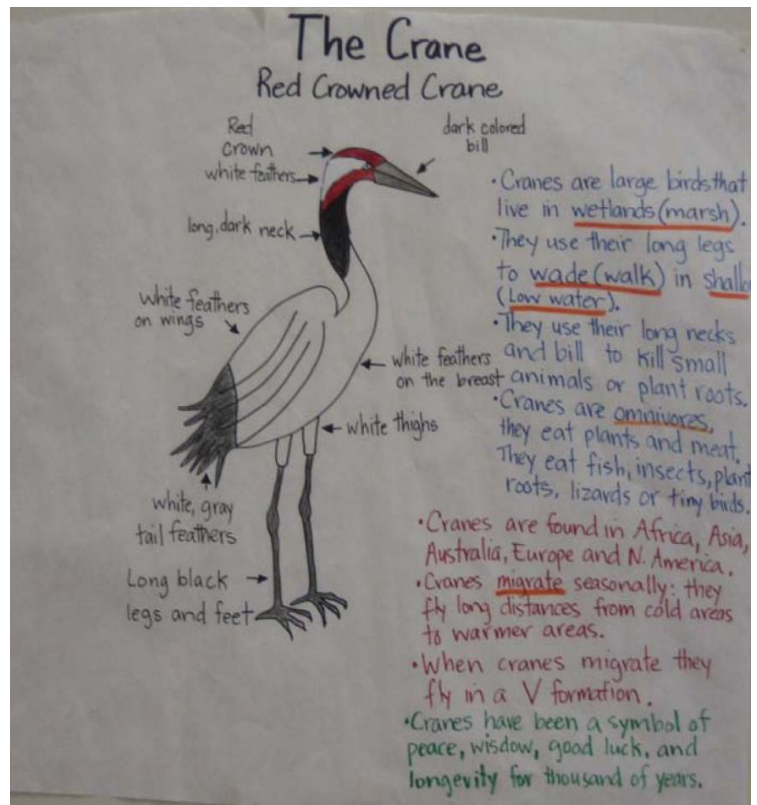 The Crane
Red Crowned Crane
Red
crown
white feathers
long, dark neck
white feathers
on wings
white, gray
tail feathers
Long black
legs and feet
dark colored
bill
white feathers
on the breast
white thighs
•Cranes are large birds that
live in wetlands (marsh).
•They use their long legs
to wade (walk) in shallo
(Low water).
•They use their long necks
and bill to kill small
animals or plant roots.
•Cranes are omnivores,
they eat plants and meat.
They eat fish, insects, plant
roots, lizards or tiny birds.
•Cranes are found in Africa, Asia,
Australia, Europe and N. America.
•Cranes migrate seasonally: they
fly long distances from cold areas
to warmer areas.
•When cranes migrate they
fly in a V formation.
•Cranes have been a symbol of
peace, wisdow, good luck, and
longevity for thousand of years.